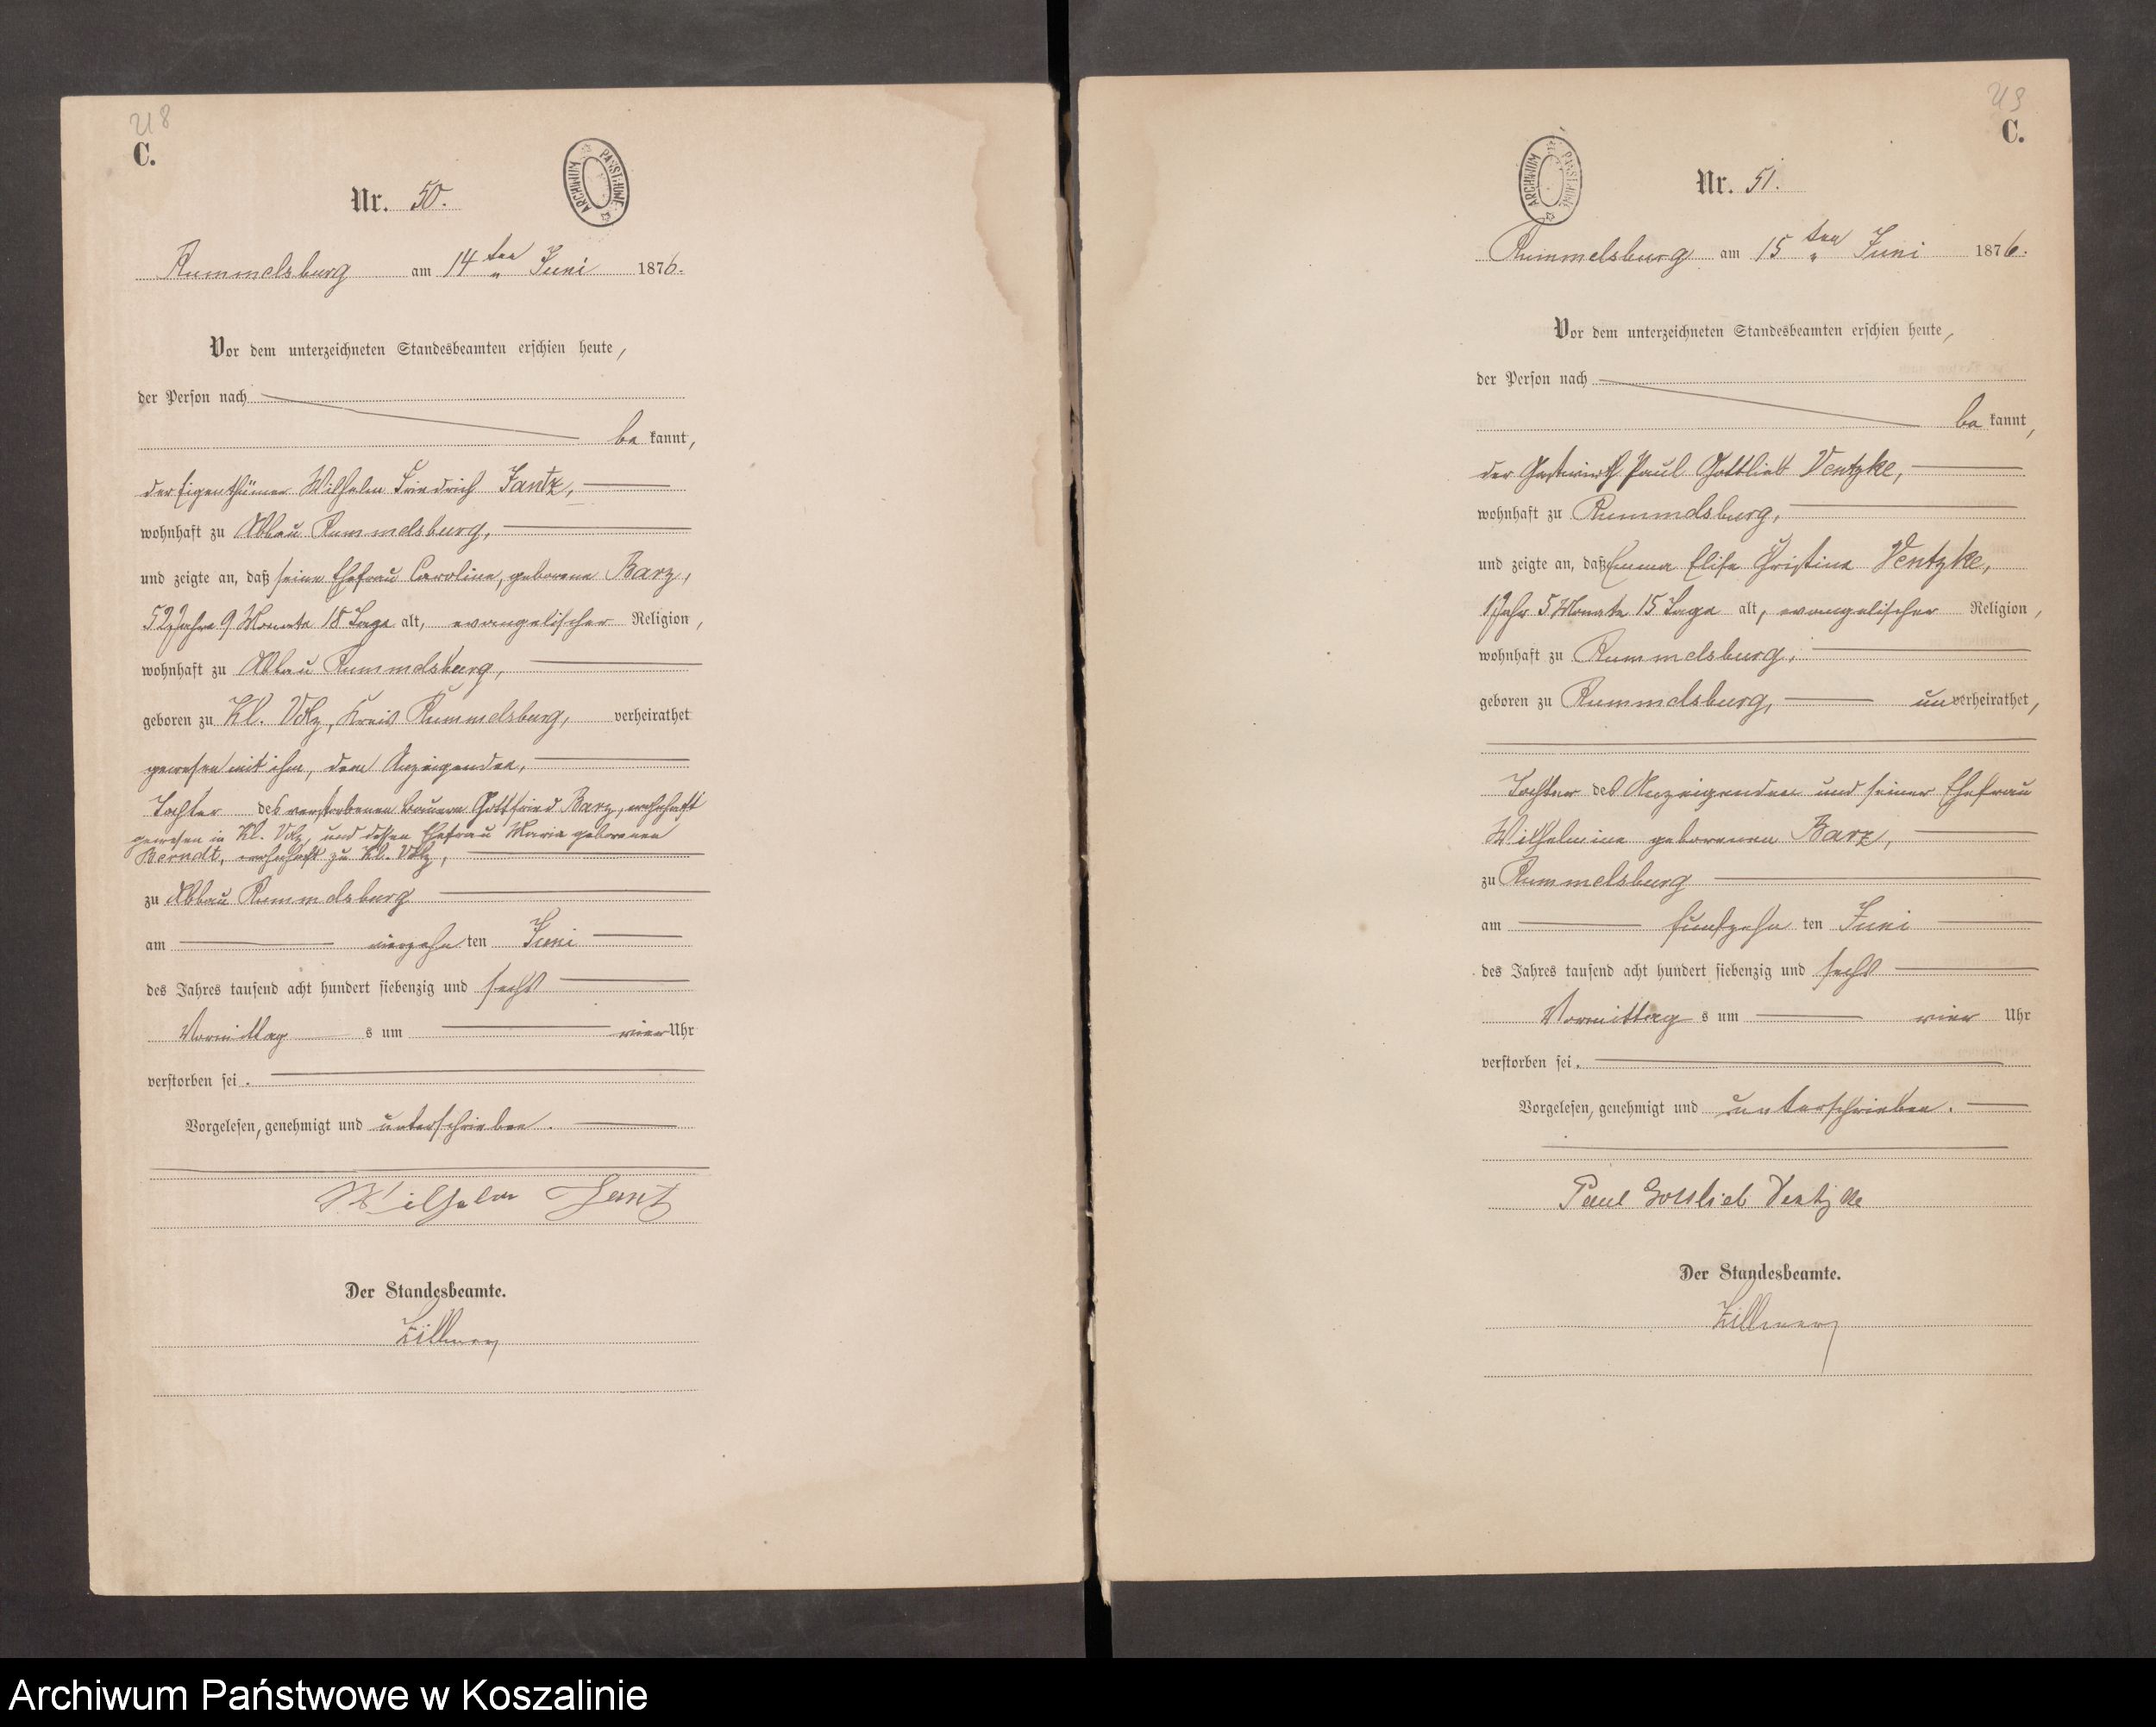 48
C.
ARCHIWUM PAŃSTWOWE
Nr. 50.
Rummelsburg am 14ten Juni 1876.
Vor dem unterzeichneten Standesbeamten erschien heute,
der Person nach
be kannt,
der Eigenthümer Wilhelm Friedrich Jantz,
wohnhaft zu Abbau Rummelsburg,
und zeigte an, daß seine Ehefrau Caroline, geborene Barz,
52 Jahre 9 Monate 18 Tage alt, evangelischer Religion,
wohnhaft zu Abbau Rummelsburg,
geboren zu Kl. Volz, Kreis Rummelsburg, verheirathet
gewesen mit ihm, dem Anzeigenden,
Tochter des verstorbenen Bauern Gottfried Barz, wohnhaft
gewesen in Kl. Volz, und dessen Ehefrau Maria geborenen
Berndt, wohnhaft zu Kl. Volz,
zu Abbau Rummelsburg
am vierzehn ten Juni
des Jahres tausend acht hundert siebenzig und sechs
Vormittag s um vier Uhr
verstorben sei.
Vorgelesen, genehmigt und unterschrieben.
Wilhelm Jantz
Der Standesbeamte.
Zillmer
49
C.
ARCHIWUM PAŃSTWOWE
Nr. 51.
Rummelsburg am 15ten Juni 1876.
Vor dem unterzeichneten Standesbeamten erschien heute,
der Person nach
be kannt,
der Gastwirth Paul Gottlieb Ventzke,
wohnhaft zu Rummelsburg,
und zeigte an, daß Emma Elise Christine Ventzke,
1 Jahr 5 Monate 15 Tage alt, evangelischer Religion,
wohnhaft zu Rummelsburg,
geboren zu Rummelsburg, un verheirathet,
Tochter des Anzeigenden und seiner Ehefrau
Wilhelmine geborenen Barz,
zu Rummelsburg
am funfzehn ten Juni
des Jahres tausend acht hundert siebenzig und sechs
Vormittag s um vier Uhr
verstorben sei.
Vorgelesen, genehmigt und unterschrieben.
Paul Gottlieb Ventzke
Der Standesbeamte.
Zillmer
Archiwum Państwowe w Koszalinie